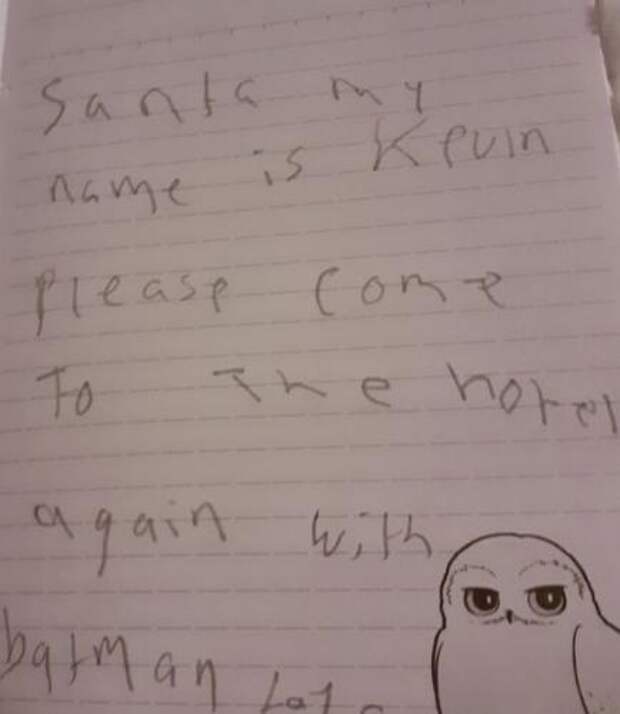 Santa my
name is Kevin
please come
To The hotel
again with
batman